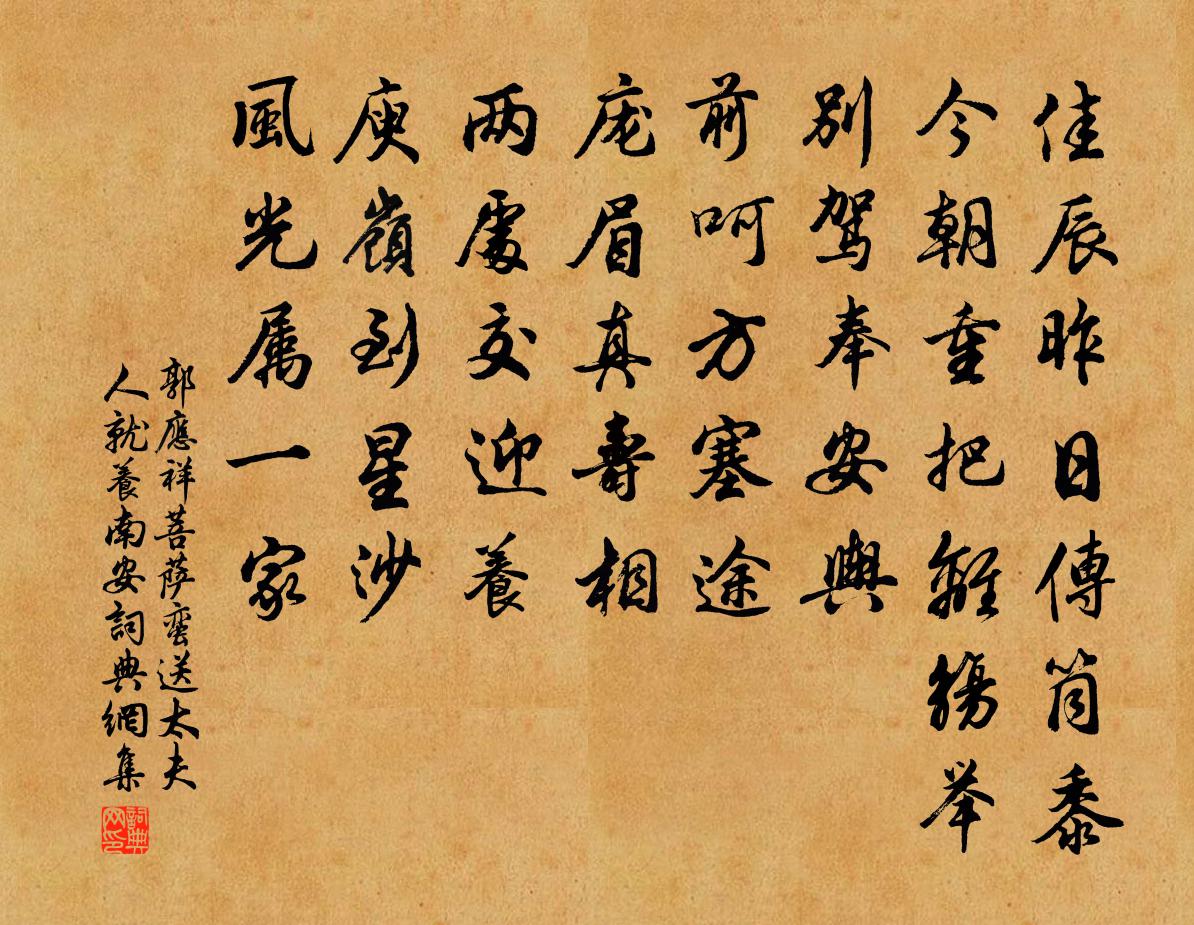 佳辰昨日傳筒黍
今朝重把離觴举
別駕奉安輿
前呵方塞途
庞眉真壽相
两處交迎養
庾嶺到星沙
風光属一家
郭應祥菩萨蛮送太夫
人就養南安詞典網集
詞典网印